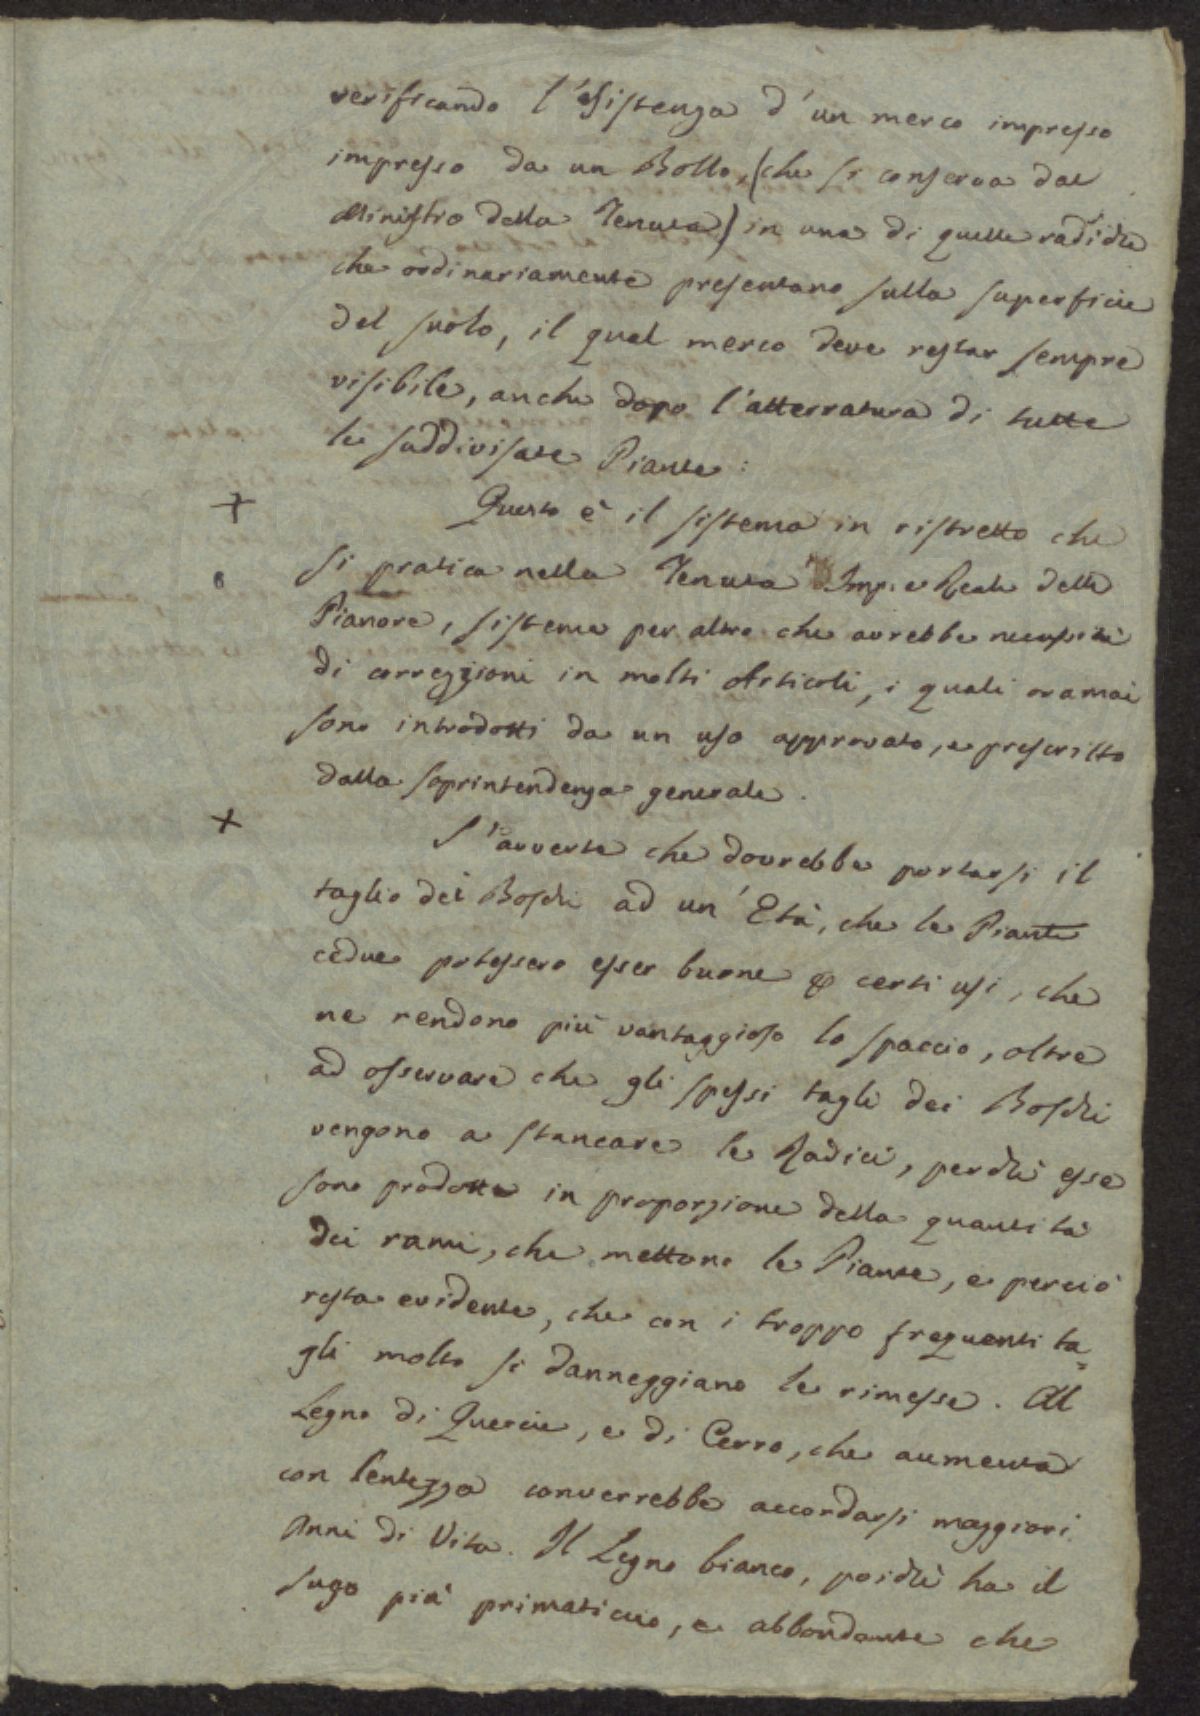 verificando l'esistenza d'un merco impresso
impresso da un Bollo, (che si conserva dal
Ministro della Tenuta) in una di quelle radiche
che ordinariamente presentano sulla superficie
del suolo, il qual merco deve restar sempre
visibile, anche dopo l'atterratura di tutte
le suddivisate Piante:
+ Questo è il sistema in ristretto che
si pratica nella Tenuta Imp. e Reale delle
Pianore, sistema per altro che avrebbe necessità
di correzzioni in molti Articoli, i quali oramai
sono introdotti da un uso approvato, e prescritto
dalla soprintendenza generale.
+ S'avverte che dovrebbe portarsi il
taglio dei Boschi ad un' Età, che le Piante
cedue potessero esser buone p certi usi, che
ne rendono più vantaggioso lo spaccio, oltre
ad osservare che gli spessi tagli dei Boschi
vengono a stancare le Radici, perchè esse
sono prodotte in proporzione della quantità
dei rami, che mettono le Piante, e perciò
resta evidente, che con i troppo frequenti ta=
gli molto si danneggiano le rimesse. Al
Legno di Quercie, e di Cerro, che aumenta
con lentezza converrebbe accordarsi maggiori
Anni di Vita. Il Legno bianco, poichè ha il
sugo più primaticcio, e abbondante che